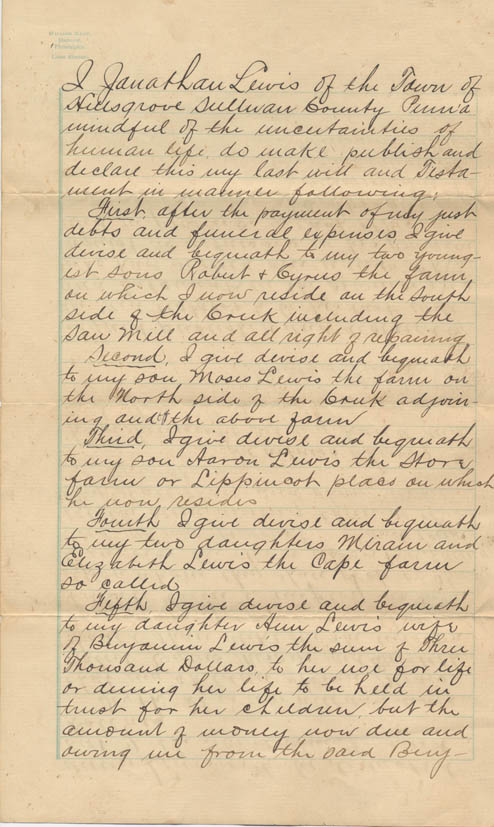 I Janathan Lewis of the Town of
Hillsgrove Sullivan County Penn'a
mindful of the uncertainties of
human life, do make publish and
declare this my last will and Testa-
ment in manner following;
First, after the payment of my just
debts and funeral expenses I give
devise and bequeath to my two young-
est sons Robert & Cyrus the farm
on which I now reside on the South
side of the Creek including the
Saw Mill and all right of repairing
Second, I give devise and bequeath
to my son, Moses Lewis the farm on
the North side of the Creek adjoin-
ing the above farm
Third, I give devise and bequeath
to my son Aaron Lewis the Store
farm or Lippincot place on which
he now resides
Fourth I give devise and bequeath
to my two daughters Miram and
Elizabeth Lewis the Cape farm
so called
Fifth, I give devise and bequeath
to my daughter Ann Lewis wife
of Benjamin Lewis the sum of Three
Thousand Dollars, to her use for life
or during her life to be held in
trust for her children, but the
amount of money now due and
owing me from the said Benj-